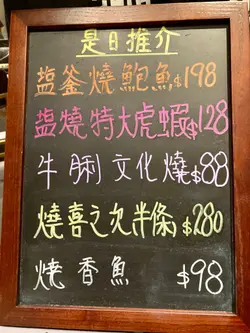 是日推介
塩釜燒鮑魚$198
塩燒特大虎蝦$128
牛脷文化燒$88
燒喜之次半條$280
燒香魚 $98